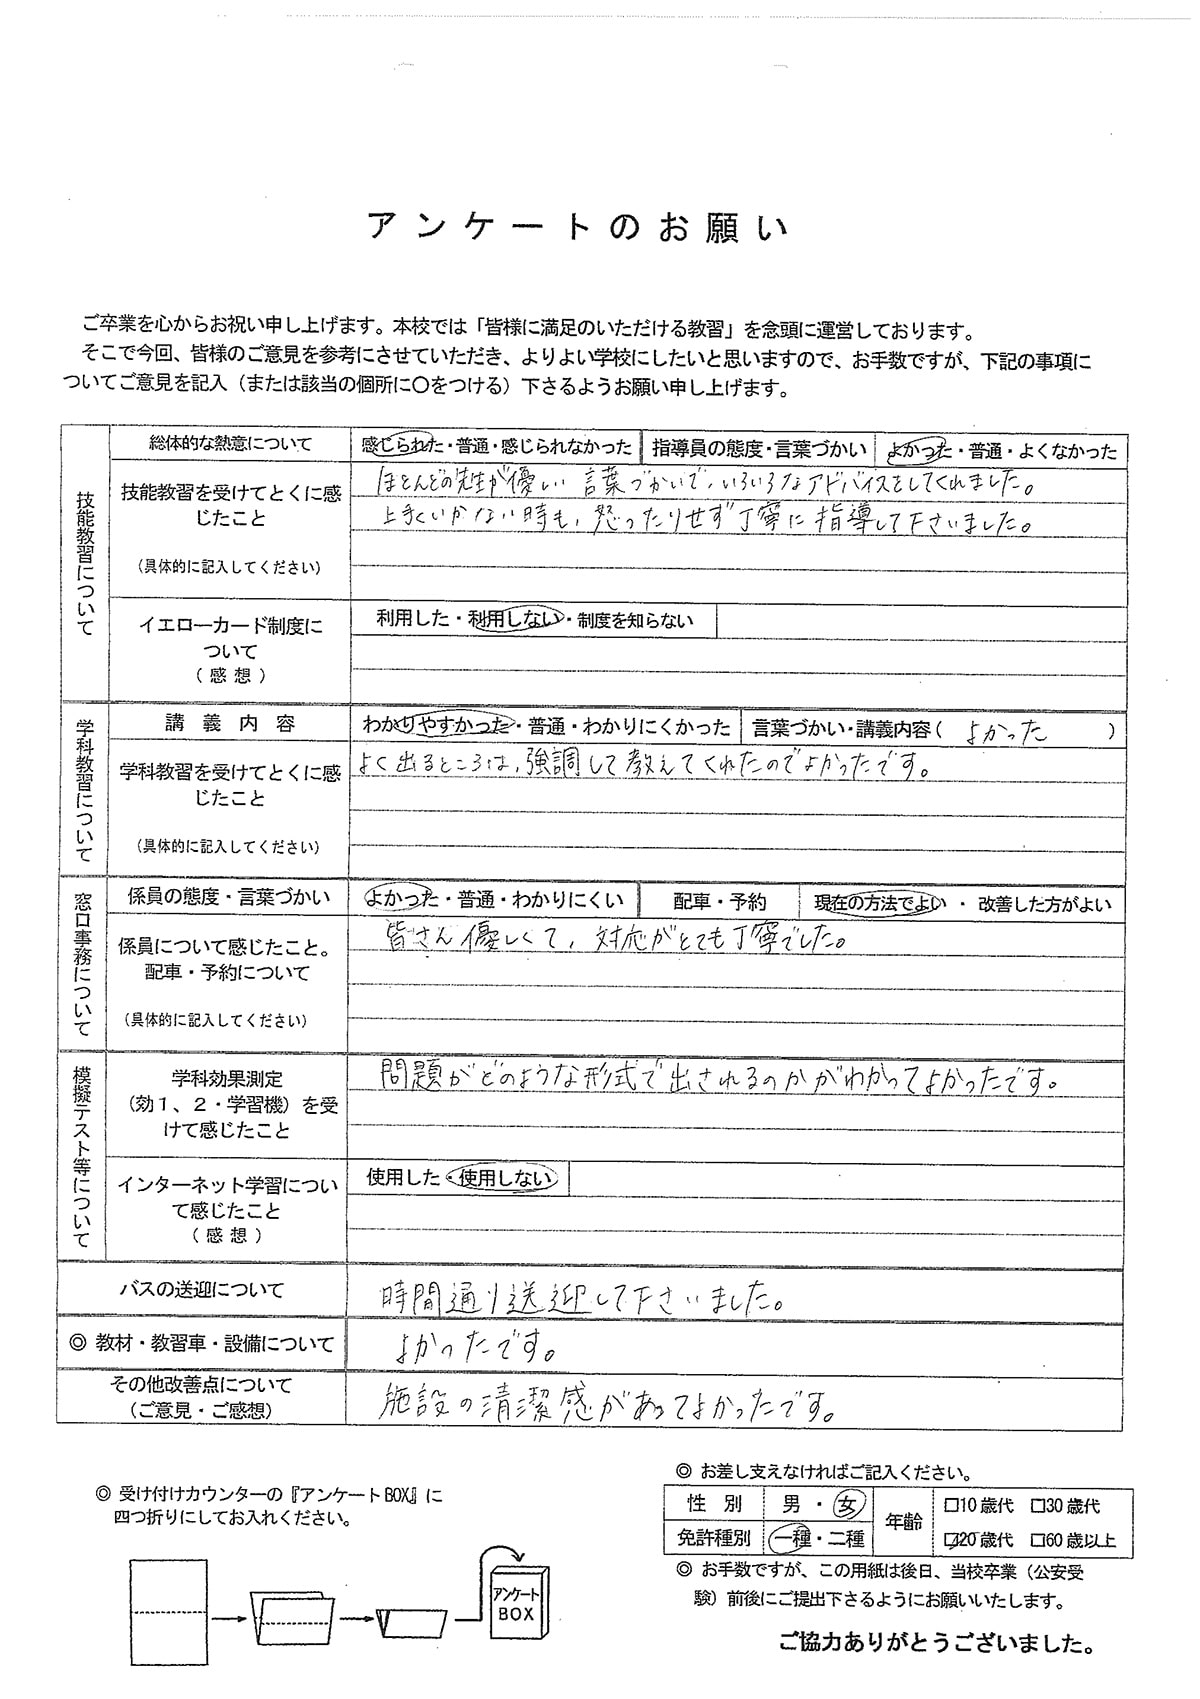 アンケートのお願い
ご卒業を心からお祝い申し上げます。本校では「皆様に満足のいただける教習」を念頭に運営しております。
そこで今回、皆様のご意見を参考にさせていただき、よりよい学校にしたいと思いますので、お手数ですが、下記の事項に
ついてご意見を記入（または該当の個所に〇をつける）下さるようお願い申し上げます。
技能教習について
総体的な熱意について 感じられた・普通・感じられなかった 指導員の態度・言葉づかい よかった・普通・よくなかった
技能教習を受けてとくに感
じたこと
（具体的に記入してください）
ほとんどの先生が優しい言葉づかいで、いろいろなアドバイスをしてくれました。
上手くいかない時も、怒ったりせず丁寧に指導して下さいました。
イエローカード制度に
ついて
（感想）
利用した・利用しない・制度を知らない
学科教習について
講義内容 わかりやすかった・普通・わかりにくかった 言葉づかい・講義内容（ よかった ）
学科教習を受けてとくに感
じたこと
（具体的に記入してください）
よく出るところは、強調して教えてくれたのでよかったです。
窓口事務について
係員の態度・言葉づかい よかった・普通・わかりにくい 配車・予約 現在の方法でよい・改善した方がよい
係員について感じたこと。
配車・予約について
（具体的に記入してください）
皆さん優しくて、対応がとても丁寧でした。
模擬テスト等について
学科効果測定
（効１、２・学習機）を受
けて感じたこと
問題がどのような形式で出されるのかがわかってよかったです。
インターネット学習につい
て感じたこと
（感想）
使用した・使用しない
バスの送迎について 時間通り送迎して下さいました。
◎ 教材・教習車・設備について よかったです。
その他改善点について
（ご意見・ご感想）
施設の清潔感があってよかったです。
◎ 受け付けカウンターの『アンケートBOX』に
四つ折りにしてお入れください。
アンケート
BOX
◎ お差し支えなければご記入ください。
性別 男・女 年齢 □10歳代 □30歳代
免許種別 一種・二種 ☑20歳代 □60歳以上
◎ お手数ですが、この用紙は後日、当校卒業（公安受
験）前後にご提出下さるようにお願いいたします。
ご協力ありがとうございました。